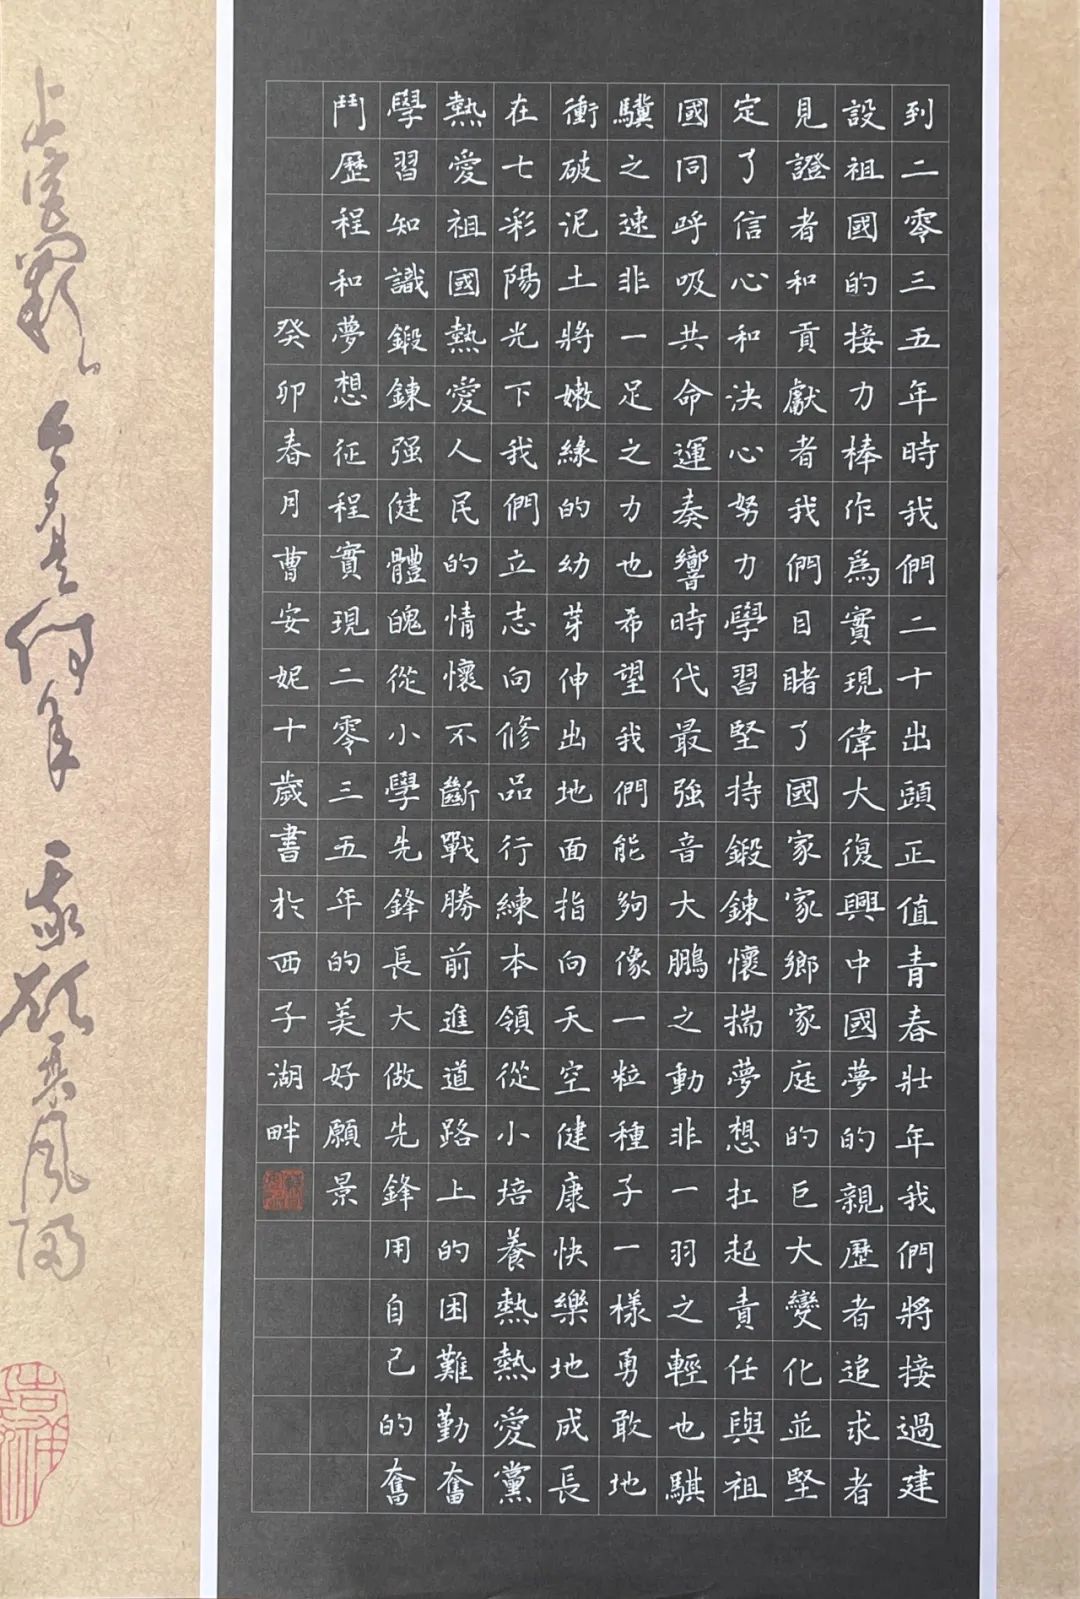 到二零三五年時我們二十出頭正值青春壯年我們將接過建
設祖國的接力棒作爲實現偉大復興中國夢的親歷者追求者
見證者和貢獻者我們目睹了國家家鄉家庭的巨大變化並堅
定了信心和決心努力學習堅持鍛鍊懷揣夢想扛起責任與祖
國同呼吸共命運奏響時代最強音大鵬之動非一羽之輕也騏
驥之速非一足之力也希望我們能夠像一粒種子一樣勇敢地
衝破泥土將嫩綠的幼芽伸出地面指向天空健康快樂地成長
在七彩陽光下我們立志向修品行練本領從小培養熱熱愛黨
熱愛祖國熱愛人民的情懷不斷戰勝前進道路上的困難勤奮
學習知識鍛鍊强健體魄從小學先鋒長大做先鋒用自己的奮
鬥歷程和夢想征程實現二零三五年的美好願景
癸卯春月曹安妮十歲書於西子湖畔